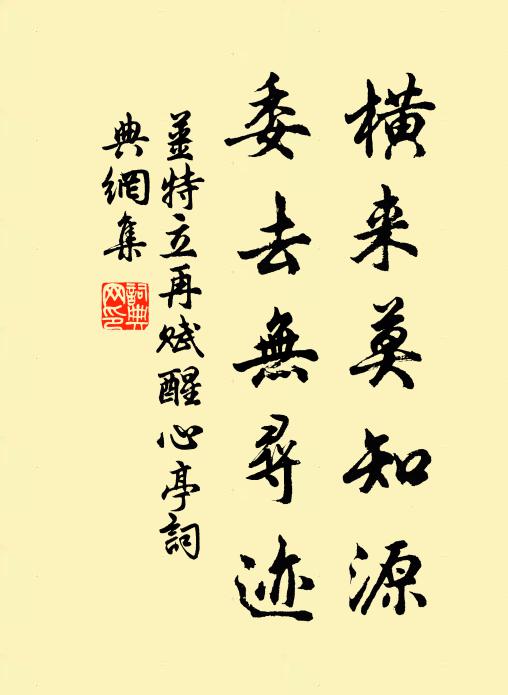 橫来莫知源
委去無尋迹
姜特立再赋醒心亭詞
典網集
詞典網印